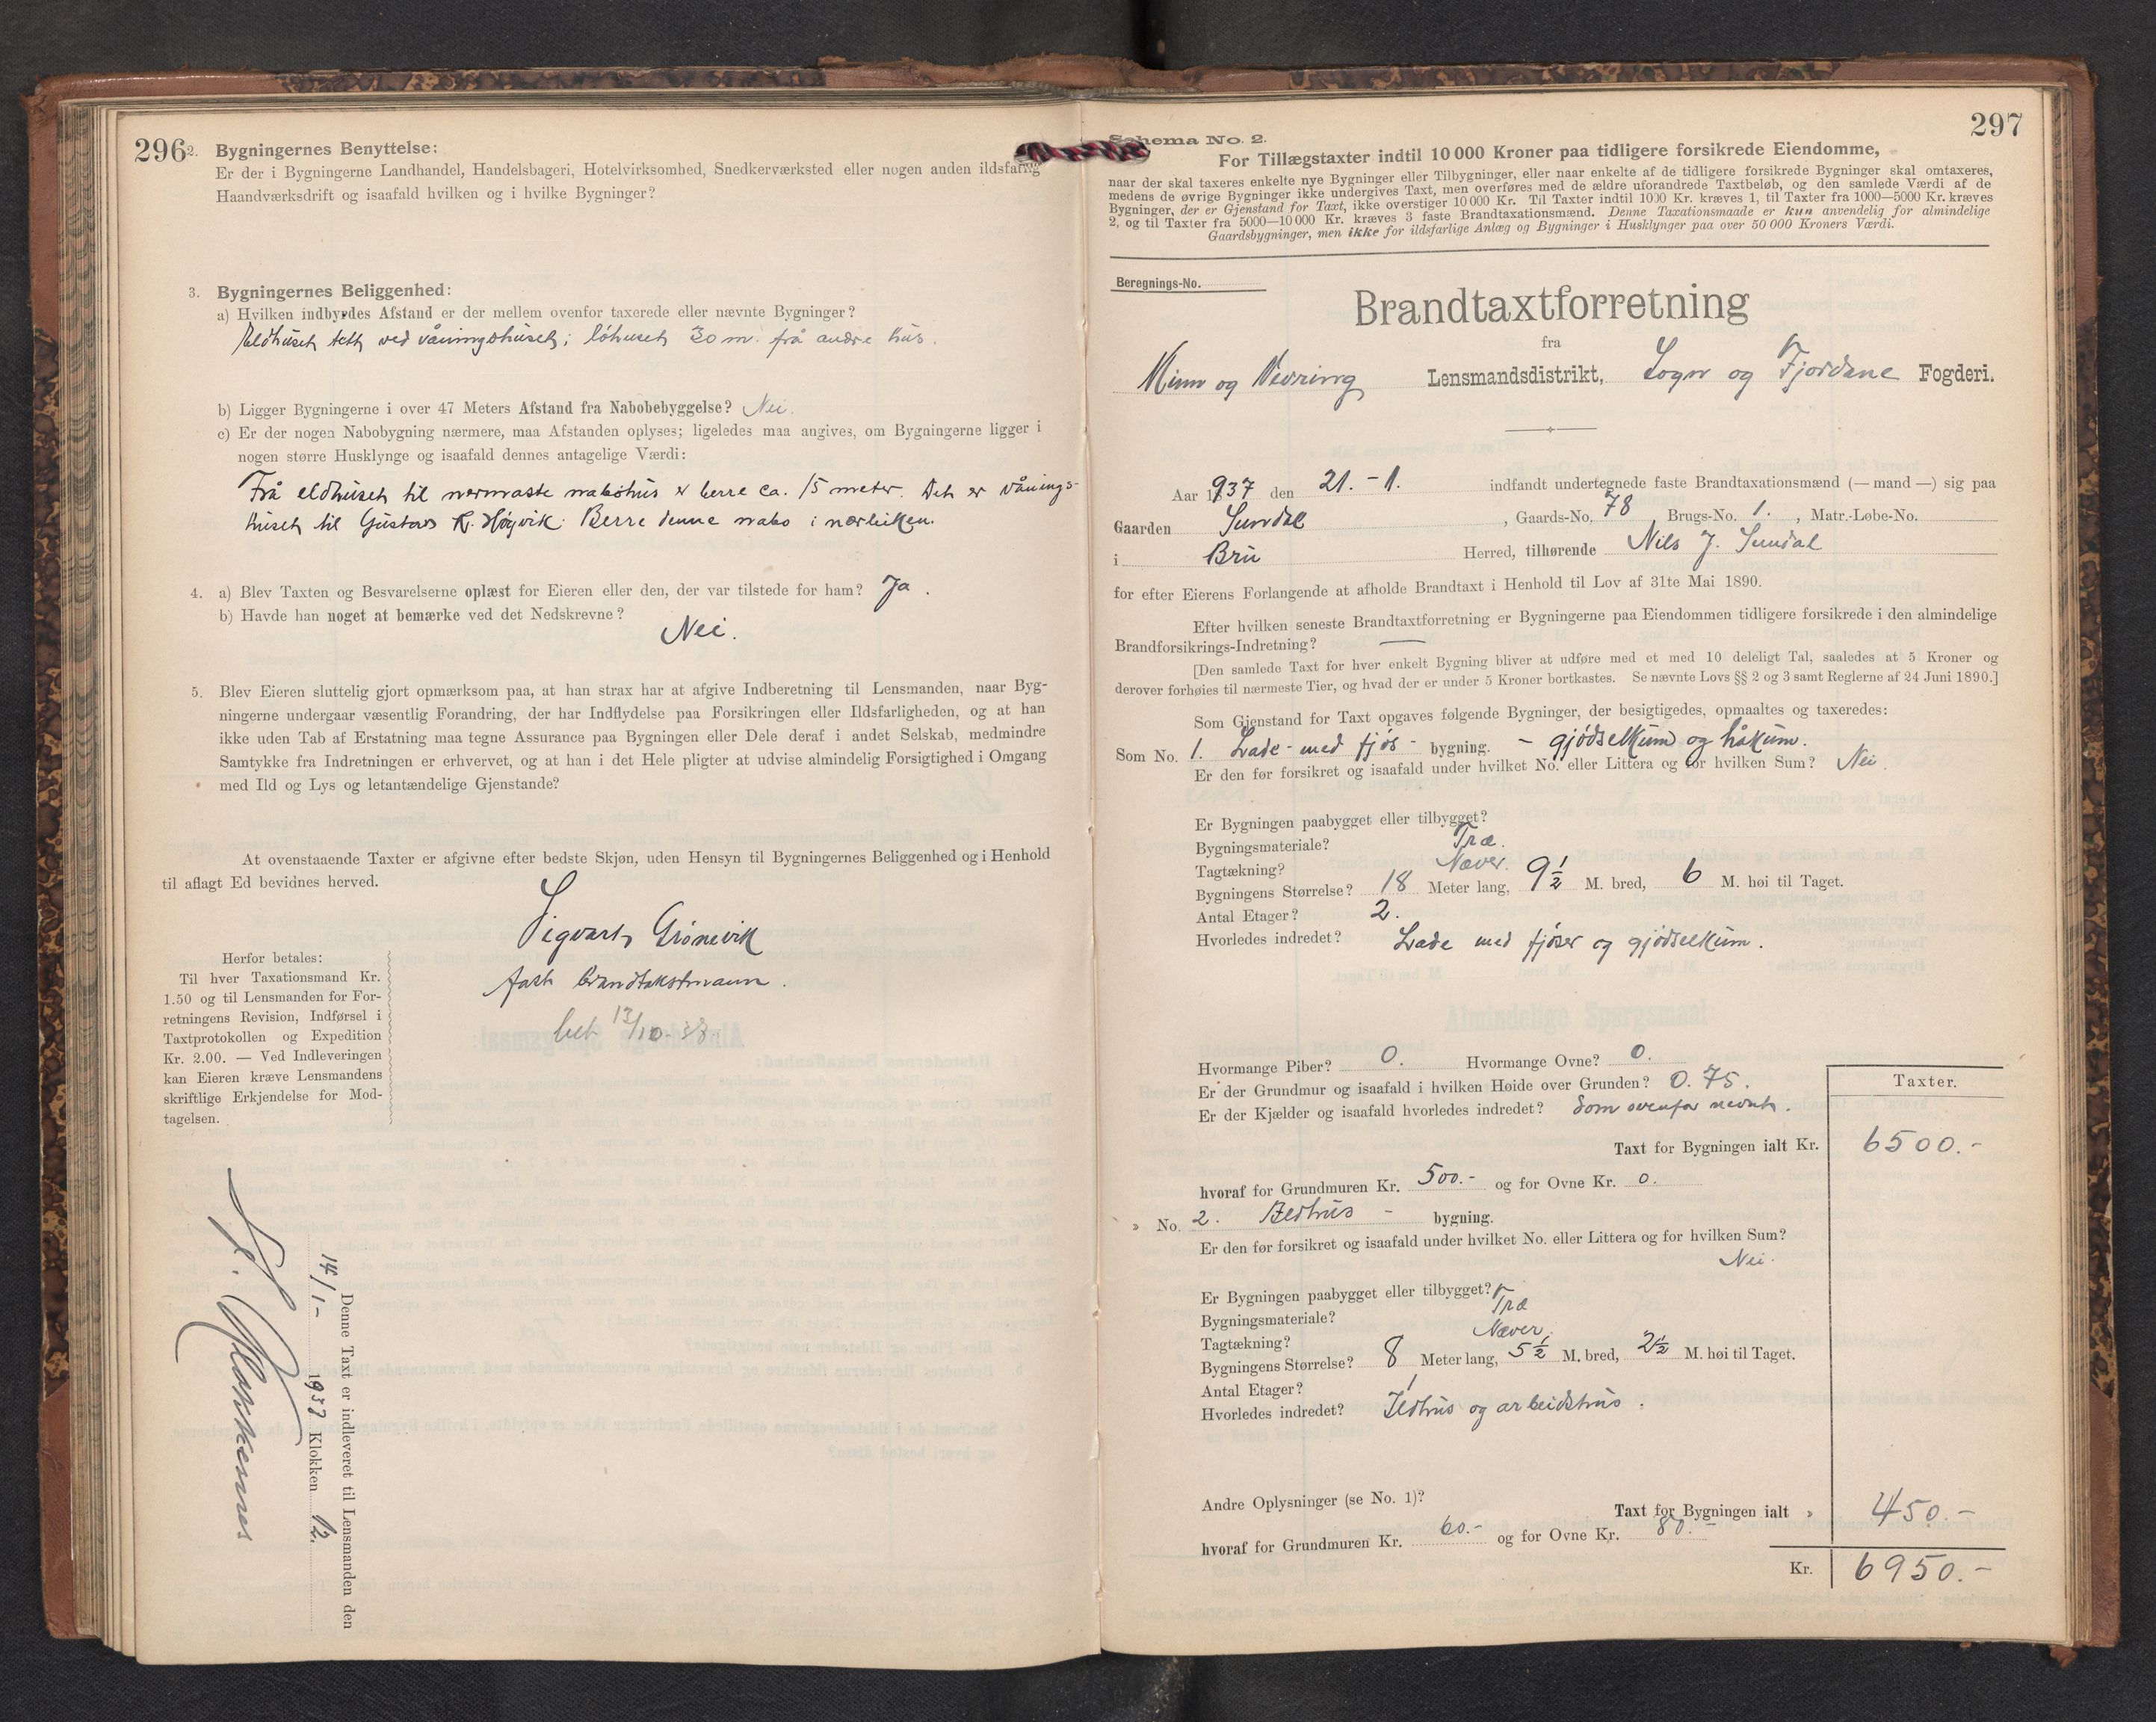 296
2. Bygningernes Benyttelse:
Er der i Bygningerne Landhandel, Handelsbageri, Hotelvirksomhed, Snedkerværksted eller nogen anden ildsfarlig
Haandværksdrift og isaafald hvilken og i hvilke Bygninger?
3. Bygningernes Beliggenhed:
a) Hvilken indbyrdes Afstand er der mellem ovenfor taxerede eller nævnte Bygninger?
Eldhuset tett ved våningshuset; løhuset 30 m. frå andre hus.
b) Ligger Bygningerne i over 47 Meters Afstand fra Nabobebyggelse? Nei.
c) Er der nogen Nabobygning nærmere, maa Afstanden oplyses; ligeledes maa angives, om Bygningerne ligger i
nogen større Husklynge og isaafald dennes antagelige Værdi:
Frå eldhuset til nærmaste nabohus er berre ca. 15 meter. Det er vånings-
huset til Gustav K. Høyvik. Berre denne nabo i nærleiken.
4. a) Blev Taxten og Besvarelserne oplæst for Eieren eller den, der var tilstede for ham? Ja.
b) Havde han noget at bemærke ved det Nedskrevne?
Nei.
5. Blev Eieren sluttelig gjort opmærksom paa, at han strax har at afgive Indberetning til Lensmanden, naar Byg-
ningerne undergaar væsentlig Forandring, der har Indflydelse paa Forsikringen eller Ildsfarligheden, og at han
ikke uden Tab af Erstatning maa tegne Assurance paa Bygningen eller Dele deraf i andet Selskab, medmindre
Samtykke fra Indretningen er erhvervet, og at han i det Hele pligter at udvise almindelig Forsigtighed i Omgang
med Ild og Lys og letantændelige Gjenstande?
At ovenstaaende Taxter er afgivne efter bedste Skjøn, uden Hensyn til Bygningernes Beliggenhed og i Henhold
til aflagt Ed bevidnes herved.
Sigvart Grønevik
fast brandtakstmann.
bet 13/10-38.
Herfor betales:
Til hver Taxationsmand Kr.
1.50 og til Lensmanden for For-
retningens Revision, Indførsel i
Taxtprotokollen og Expedition
Kr. 2.00. — Ved Indleveringen
kan Eieren kræve Lensmandens
skriftlige Erkjendelse for Mod-
tagelsen.
Denne Taxt er indleveret til Lensmanden den
14/1- 1937 Klokken 12.
297
Schema No. 2.
For Tillægstaxter indtil 10 000 Kroner paa tidligere forsikrede Eiendomme,
naar der skal taxeres enkelte nye Bygninger eller Tilbygninger, eller naar enkelte af de tidligere forsikrede Bygninger skal omtaxeres,
medens de øvrige Bygninger ikke undergives Taxt, men overføres med de ældre uforandrede Taxtbeløb, og den samlede Værdi af de
Bygninger, der er Gjenstand for Taxt, ikke overstiger 10 000 Kr. Til Taxter indtil 1000 Kr. kræves 1, til Taxter fra 1000—5000 Kr. kræves
2, og til Taxter fra 5000—10 000 Kr. kræves 3 faste Brandtaxationsmænd. Denne Taxationsmaade er kun anvendelig for almindelige
Gaardsbygninger, men ikke for ildsfarlige Anlæg og Bygninger i Husklynger paa over 50 000 Kroners Værdi.
Beregnings-No.
Brandtaxtforretning
fra
Kinn og Nevring Lensmandsdistrikt, Sogn og Fjordane Fogderi.
Aar 1937 den 21.-1. indfandt undertegnede faste Brandtaxationsmænd (— mand —) sig paa
Gaarden Sundal, Gaards-No. 78 Brugs-No. 1., Matr.-Løbe-No.
i Bru Herred, tilhørende Nils J. Sundal
for efter Eierens Forlangende at afholde Brandtaxt i Henhold til Lov af 31te Mai 1890.
Efter hvilken seneste Brandtaxtforretning er Bygningerne paa Eiendommen tidligere forsikrede i den almindelige
Brandforsikrings-Indretning? —
[Den samlede Taxt for hver enkelt Bygning bliver at udføre med et med 10 deleligt Tal, saaledes at 5 Kroner og
derover forhøies til nærmeste Tier, og hvad der er under 5 Kroner bortkastes. Se nævnte Lovs §§ 2 og 3 samt Reglerne af 24 Juni 1890.]
Som Gjenstand for Taxt opgaves følgende Bygninger, der besigtigedes, opmaaltes og taxeredes:
Som No. 1. Lade- med fjøs- bygning. - gjødselkum og håkum.
Er den før forsikret og isaafald under hvilket No. eller Littera og for hvilken Sum? Nei
Er Bygningen paabygget eller tilbygget?
Bygningsmateriale? Træ.
Tagtækning? Næver.
Bygningens Størrelse? 18 Meter lang, 9½ M. bred, 6 M. høi til Taget.
Antal Etager? 2.
Hvorledes indredet? Lade med fjøser og gjødselkum.
Hvormange Piber? 0. Hvormange Ovne? 0.
Er der Grundmur og isaafald i hvilken Høide over Grunden? 0.75.
Er der Kjælder og isaafald hvorledes indredet? Som ovenfor nevnt.
Taxter.
Taxt for Bygningen ialt Kr. 6500.-
hvoraf for Grundmuren Kr. 500.- og for Ovne Kr. 0.
» No. 2. Eldhus - bygning.
Er den før forsikret og isaafald under hvilket No. eller Littera og for hvilken Sum?
Nei.
Er Bygningen paabygget eller tilbygget?
Bygningsmateriale? Træ
Tagtækning? Næver.
Bygningens Størrelse? 8 Meter lang, 5½ M. bred, 2½ M. høi til Taget.
Antal Etager? 1
Hvorledes indredet? Ildhus og arbeidshus.
Andre Oplysninger (se No. 1)?
Taxt for Bygningen ialt » 450.-
hvoraf for Grundmuren Kr. 60.- og for Ovne Kr. 80.-
Kr. 6950.-